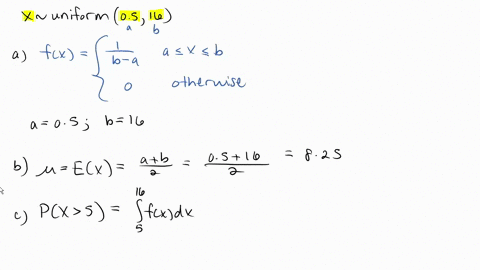 X ~ uniform (0.5, 16)
a b
a) f(x) = { 1/(b-a) a ≤ x ≤ b
0 otherwise
a = 0.5 ; b = 16
b) μ = E(X) = (a+b)/2 = (0.5+16)/2 = 8.25
c) P(X > 5) = ∫₅¹⁶ f(x) dx